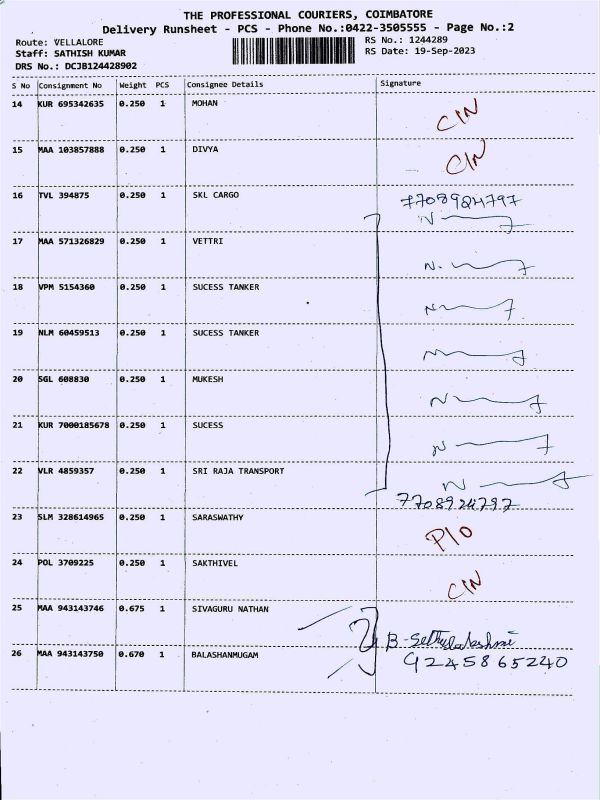 THE PROFESSIONAL COURIERS, COIMBATORE
Delivery Runsheet - PCS - Phone No.:0422-3505555 - Page No.:2
Route: VELLALORE
RS No.: 1244289
Staff: SATHISH KUMAR
RS Date: 19-Sep-2023
DRS No.: DCJB124428902
S No Consignment No Weight PCS Consignee Details Signature
14 KUR 695342635 0.250 1 MOHAN CIN
15 MAA 103857888 0.250 1 DIVYA CIN
16 TVL 394875 0.250 1 SKL CARGO 7708924797
17 MAA 571326829 0.250 1 VETTRI
18 VPM 5154360 0.250 1 SUCESS TANKER
19 NLM 60459513 0.250 1 SUCESS TANKER
20 SGL 608830 0.250 1 MUKESH
21 KUR 7000185678 0.250 1 SUCESS
22 VLR 4859357 0.250 1 SRI RAJA TRANSPORT
7708924797
23 SLM 328614965 0.250 1 SARASWATHY P/O
24 POL 3709225 0.250 1 SAKTHIVEL CIN
25 MAA 943143746 0.675 1 SIVAGURU NATHAN
B-Sethulakshmi
26 MAA 943143750 0.670 1 BALASHANMUGAM 9245865240